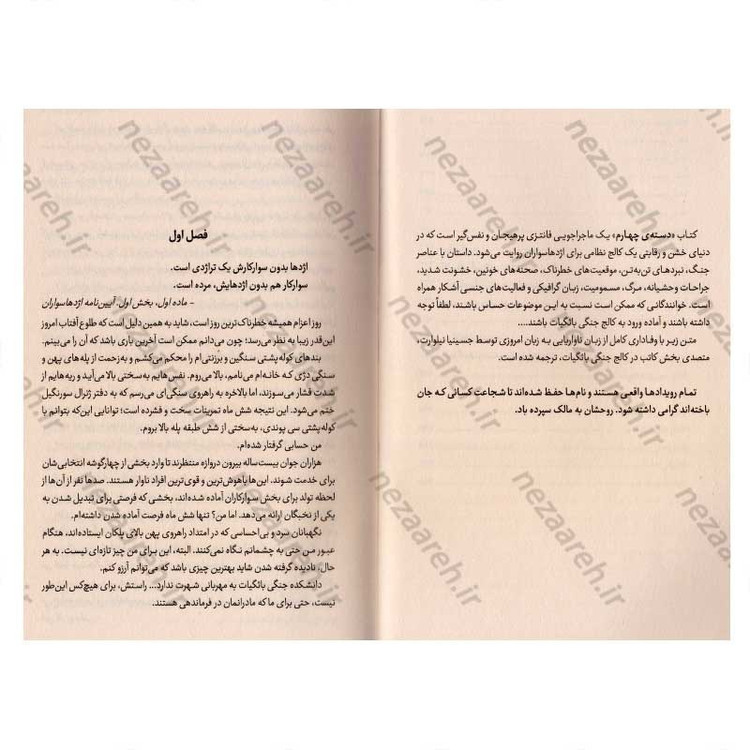 کتاب «دسته‌ی چهارم» یک ماجراجویی فانتزی پرهیجان و نفس‌گیر است که در
دنیای خشن و رقابتی یک کالج نظامی برای اژدهاسواران روایت می‌شود. داستان با عناصر
جنگ، نبردهای تن‌به‌تن، موقعیت‌های خطرناک، صحنه‌های خونین، خشونت شدید،
جراحات وحشیانه، مرگ، مسمومیت، زبان گرافیکی و فعالیت‌های جنسی آشکار همراه
است. خوانندگانی که ممکن است نسبت به این موضوعات حساس باشند، لطفاً توجه
داشته باشند و آماده ورود به کالج جنگی باثگیات باشند....
متن زیر با وفاداری کامل از زبان ناواریایی به زبان امروزی توسط جسینیا نیلوارت،
متصدی بخش کاتب در کالج جنگی باثگیات، ترجمه شده است.
تمام رویدادها واقعی هستند و نام‌ها حفظ شده‌اند تا شجاعت کسانی که جان
باخته‌اند گرامی داشته شود. روحشان به مالک سپرده باد.
فصل اول
اژدها بدون سوارکارش یک تراژدی است.
سوارکار هم بدون اژدهایش، مرده است.
– ماده اول، بخش اول، آیین‌نامه اژدهاسواران
روز اعزام همیشه خطرناک‌ترین روز است، شاید به همین دلیل است که طلوع آفتاب امروز
این‌قدر زیبا به نظر می‌رسد؛ چون می‌دانم ممکن است آخرین باری باشد که آن را می‌بینم.
بندهای کوله‌پشتی سنگین و برزنتی‌ام را محکم می‌کشم و به‌زحمت از پله‌های پهن و
سنگی دژی که خانه‌ام می‌نامم، بالا می‌روم. نفس‌هایم به‌سختی بالا می‌آید و ریه‌هایم از
شدت فشار می‌سوزند، اما بالاخره به راهروی سنگی‌ای می‌رسم که به دفتر ژنرال سورنگیل
ختم می‌شود. این نتیجه شش ماه تمرینات سخت و فشرده است؛ توانایی این‌که بتوانم با
کوله‌پشتی سی پوندی، به‌سختی از شش طبقه پله بالا بروم.
من حسابی گرفتار شده‌ام.
هزاران جوان بیست‌ساله بیرون دروازه منتظرند تا وارد بخشی از چهارگوشه انتخابی‌شان
برای خدمت شوند. این‌ها باهوش‌ترین و قوی‌ترین افراد ناوار هستند. صدها نفر از آن‌ها از
لحظه تولد برای بخش سوارکاران آماده شده‌اند، بخشی که فرصتی برای تبدیل شدن به
یکی از نخبگان ارائه می‌دهد. اما من؟ تنها شش ماه فرصت آماده شدن داشته‌ام.
نگهبانان سرد و بی‌احساسی که در امتداد راهروی پهن بالای پلکان ایستاده‌اند، هنگام
عبور من حتی به چشمانم نگاه نمی‌کنند. البته، این برای من چیز تازه‌ای نیست. به هر
حال، نادیده گرفته شدن شاید بهترین چیزی باشد که می‌توانم آرزو کنم.
دانشکده جنگی باثگیات به مهربانی شهرت ندارد... راستش، برای هیچ‌کس این‌طور
نیست، حتی برای ما که مادرانمان در فرماندهی هستند.
nezaareh.ir
nezaareh.ir
nezaareh.ir
nezaareh.ir
nezaareh.ir
nezaareh.ir
nezaareh.ir